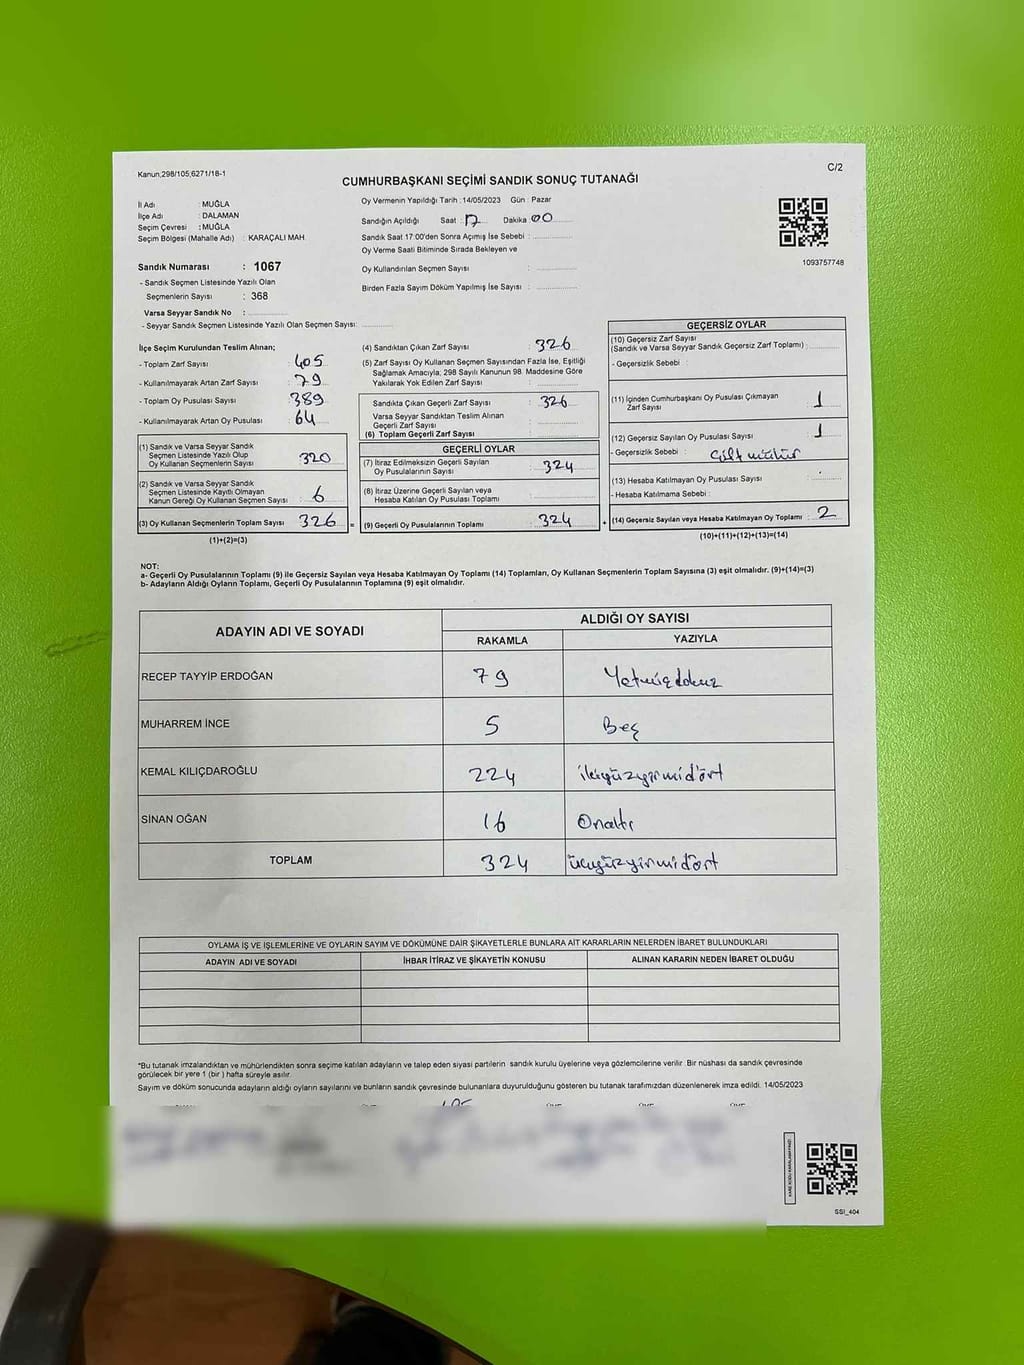 Kanun,298/105,6271/18-1
C/2
CUMHURBAŞKANI SEÇİMİ SANDIK SONUÇ TUTANAĞI
İl Adı : MUĞLA
İlçe Adı : DALAMAN
Seçim Çevresi : MUĞLA
Seçim Bölgesi (Mahalle Adı) : KARAÇALI MAH
Sandık Numarası : 1067
- Sandık Seçmen Listesinde Yazılı Olan
Seçmenlerin Sayısı : 368
Varsa Seyyar Sandık No :
- Seyyar Sandık Seçmen Listesinde Yazılı Olan Seçmen Sayısı:
Oy Vermenin Yapıldığı Tarih :14/05/2023 Gün : Pazar
Sandığın Açıldığı Saat : 17 Dakika : 00
Sandık Saat 17:00'den Sonra Açımış İse Sebebi :
Oy Verme Saati Bitiminde Sırada Bekleyen ve
Oy Kullandırılan Seçmen Sayısı :
Birden Fazla Sayım Döküm Yapılmış İse Sayısı :
1093757748
İlçe Seçim Kurulundan Teslim Alınan;
- Toplam Zarf Sayısı : 405
- Kullanılmayarak Artan Zarf Sayısı : 79
- Toplam Oy Pusulası Sayısı : 389
- Kullanılmayarak Artan Oy Pusulası : 64
(1) Sandık ve Varsa Seyyar Sandık
Seçmen Listesinde Yazılı Olup
Oy Kullanan Seçmenlerin Sayısı : 320
(2) Sandık ve Varsa Seyyar Sandık
Seçmen Listesinde Kayıtlı Olmayan
Kanun Gereği Oy Kullanan Seçmen Sayısı : 6
(3) Oy Kullanan Seçmenlerin Toplam Sayısı : 326 =
(1)+(2)=(3)
(4) Sandıktan Çıkan Zarf Sayısı : 326
(5) Zarf Sayısı Oy Kullanan Seçmen Sayısından Fazla İse, Eşitliği
Sağlamak Amacıyla, 298 Sayılı Kanunun 98. Maddesine Göre
Yakılarak Yok Edilen Zarf Sayısı :
Sandıkta Çıkan Geçerli Zarf Sayısı : 326
Varsa Seyyar Sandıktan Teslim Alınan
Geçerli Zarf Sayısı :
(6) Toplam Geçerli Zarf Sayısı :
GEÇERLİ OYLAR
(7) İtiraz Edilmeksizin Geçerli Sayılan
Oy Pusulalarının Sayısı : 324
(8) İtiraz Üzerine Geçerli Sayılan veya
Hesaba Katılan Oy Pusulası Toplamı :
(9) Geçerli Oy Pusulalarının Toplamı : 324 +
GEÇERSİZ OYLAR
(10) Geçersiz Zarf Sayısı
(Sandık ve Varsa Seyyar Sandık Geçersiz Zarf Toplamı) :
- Geçersizlik Sebebi :
(11) İçinden Cumhurbaşkanı Oy Pusulası Çıkmayan
Zarf Sayısı : 1
(12) Geçersiz Sayılan Oy Pusulası Sayısı : 1
- Geçersizlik Sebebi : Çift mühür
(13) Hesaba Katılmayan Oy Pusulası Sayısı :
- Hesaba Katılmama Sebebi :
(14) Geçersiz Sayılan veya Hesaba Katılmayan Oy Toplamı : 2
(10)+(11)+(12)+(13)=(14)
NOT:
a- Geçerli Oy Pusulalarının Toplamı (9) ile Geçersiz Sayılan veya Hesaba Katılmayan Oy Toplamı (14) Toplamları, Oy Kullanan Seçmenlerin Toplam Sayısına (3) eşit olmalıdır. (9)+(14)=(3)
b- Adayların Aldığı Oyların Toplamı, Geçerli Oy Pusulalarının Toplamına (9) eşit olmalıdır.
ADAYIN ADI VE SOYADI
ALDIĞI OY SAYISI
RAKAMLA YAZIYLA
RECEP TAYYİP ERDOĞAN 79 Yetmişdokuz
MUHARREM İNCE 5 Beş
KEMAL KILIÇDAROĞLU 224 ikiyüzyirmidört
SİNAN OĞAN 16 Onaltı
TOPLAM 324 üçyüzyirmidört
OYLAMA İŞ VE İŞLEMLERİNE VE OYLARIN SAYIM VE DÖKÜMÜNE DAİR ŞİKAYETLERLE BUNLARA AİT KARARLARIN NELERDEN İBARET BULUNDUKLARI
ADAYIN ADI VE SOYADI İHBAR İTİRAZ VE ŞİKAYETİN KONUSU ALINAN KARARIN NEDEN İBARET OLDUĞU
*Bu tutanak imzalandıktan ve mühürlendikten sonra seçime katılan adayların ve talep eden siyasi partilerin sandık kurulu üyelerine veya gözlemcilerine verilir. Bir nüshası da sandık çevresinde
görülecek bir yere 1 (bir ) hafta süreyle asılır.
Sayım ve döküm sonucunda adayların aldığı oyların sayılarını ve bunların sandık çevresinde bulunanlara duyurulduğunu gösteren bu tutanak tarafımızdan düzenlenerek imza edildi. 14/05/2023
SSI_404